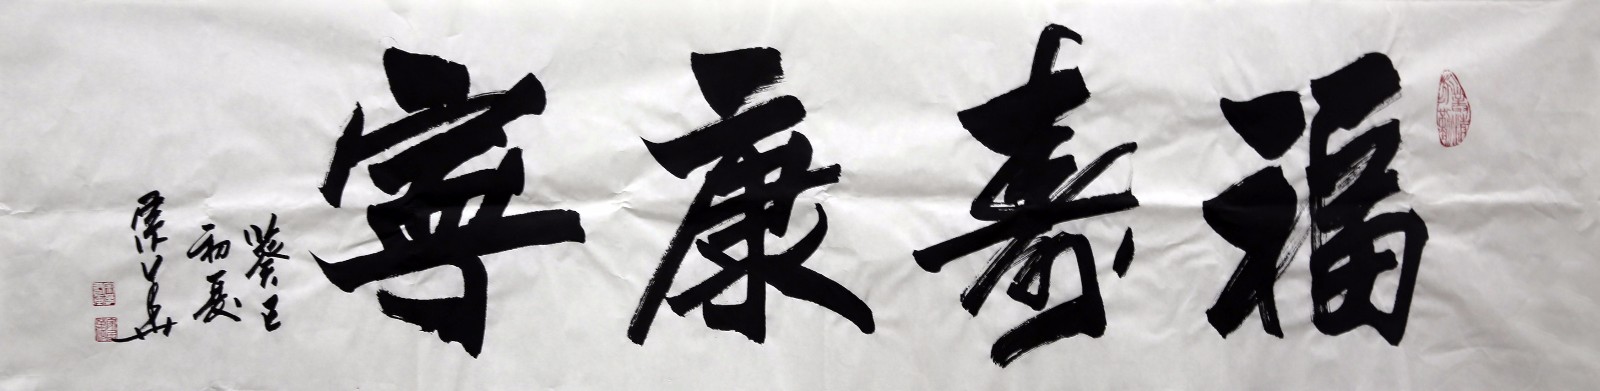 福寿康寧
癸巳
初夏